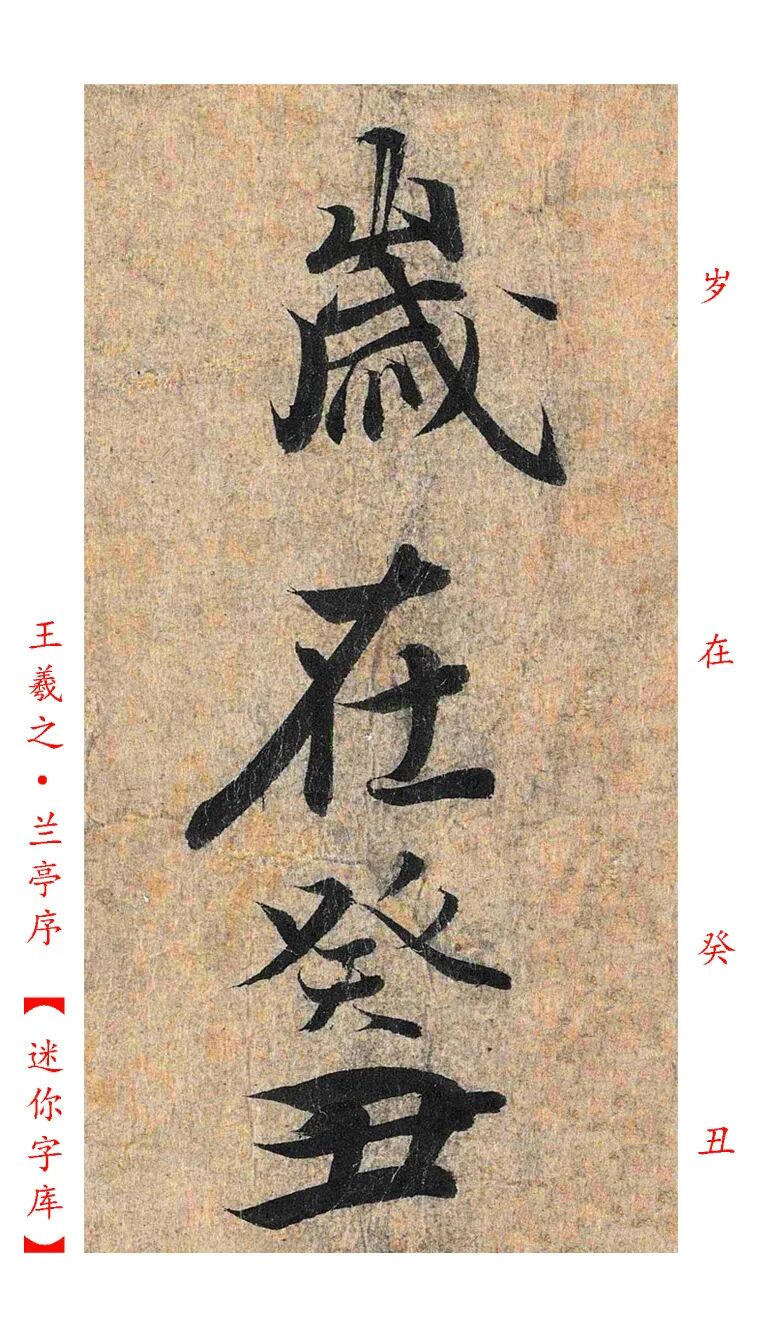 歲在癸丑
岁在癸丑
王羲之·兰亭序【迷你字库】